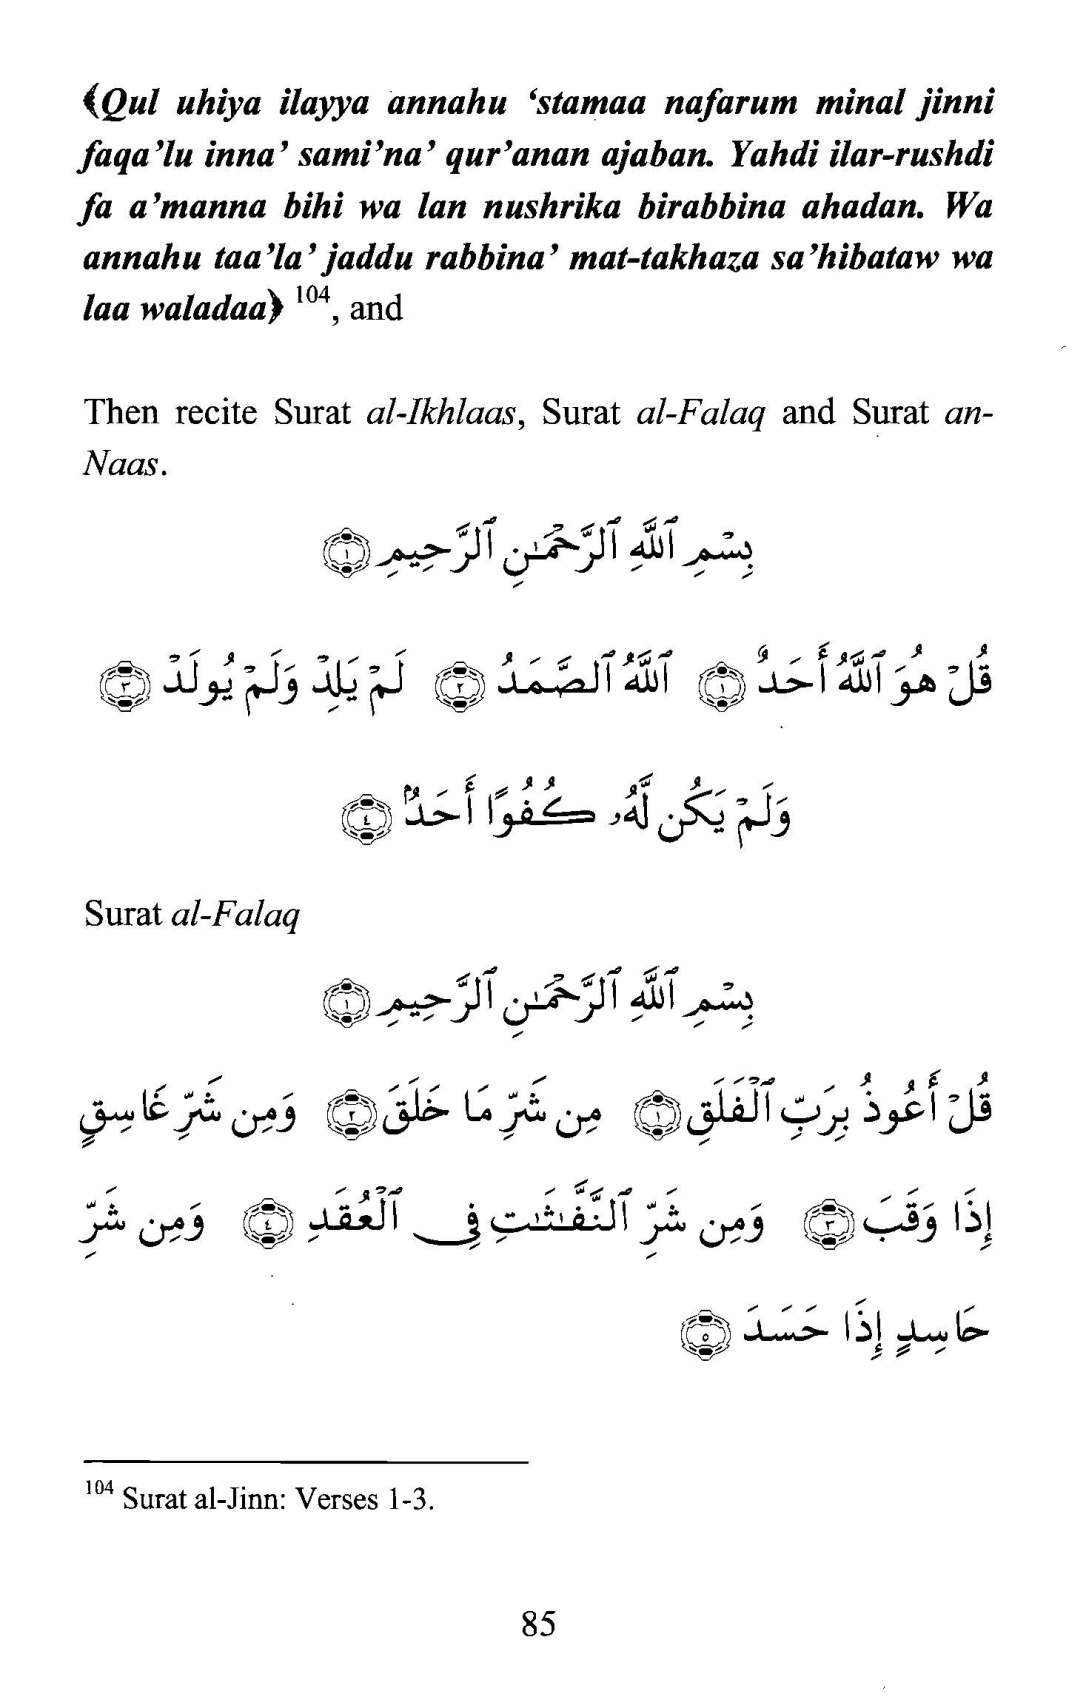 ﴾Qul uhiya ilayya annahu ‘stamaa nafarum minal jinni
faqa’lu inna’ sami’na’ qur’anan ajaban. Yahdi ilar-rushdi
fa a’manna bihi wa lan nushrika birabbina ahadan. Wa
annahu taa’la’ jaddu rabbina’ mat-takhaza sa’hibataw wa
laa waladaa﴿ 104, and
Then recite Surat al-Ikhlaas, Surat al-Falaq and Surat an-
Naas.
بِسْمِ ٱللَّهِ ٱلرَّحْمَـٰنِ ٱلرَّحِيمِ ١
قُلْ هُوَ ٱللَّهُ أَحَدٌ ١ ٱللَّهُ ٱلصَّمَدُ ٢ لَمْ يَلِدْ وَلَمْ يُولَدْ ٣
وَلَمْ يَكُن لَّهُۥ كُفُوًا أَحَدٌۢ ٤
Surat al-Falaq
بِسْمِ ٱللَّهِ ٱلرَّحْمَـٰنِ ٱلرَّحِيمِ ١
قُلْ أَعُوذُ بِرَبِّ ٱلْفَلَقِ ١ مِن شَرِّ مَا خَلَقَ ٢ وَمِن شَرِّ غَاسِقٍ
إِذَا وَقَبَ ٣ وَمِن شَرِّ ٱلنَّفَّـٰثَـٰتِ فِى ٱلْعُقَدِ ٤ وَمِن شَرِّ
حَاسِدٍ إِذَا حَسَدَ ٥
104 Surat al-Jinn: Verses 1-3.
85